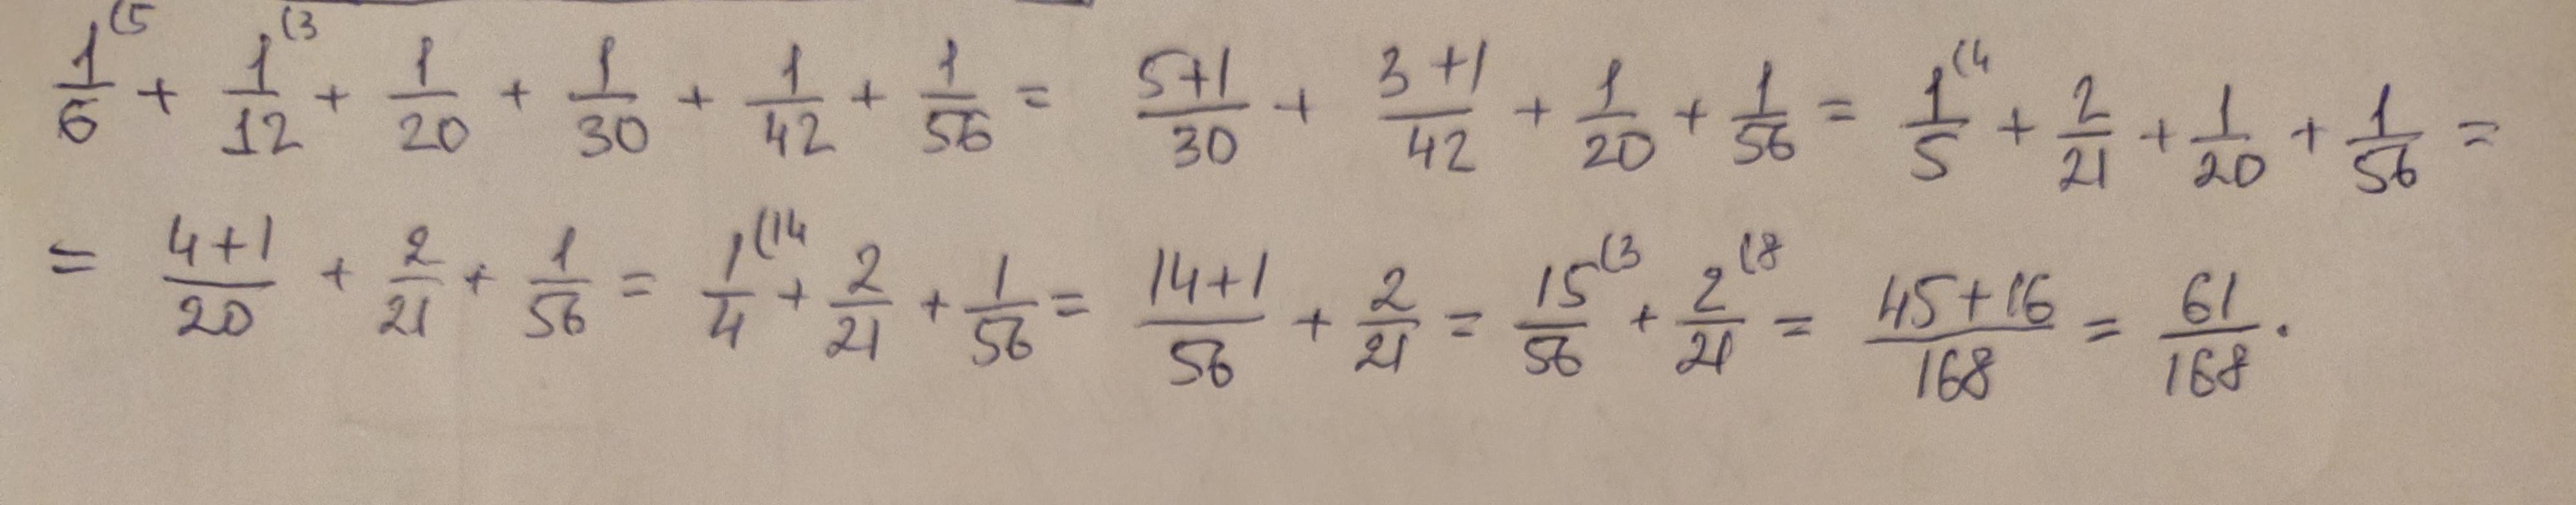 1/6 (5 + 1/12 (3 + 1/20 + 1/30 + 1/42 + 1/56 = 5+1/30 + 3+1/42 + 1/20 + 1/56 = 1/5 (4 + 2/21 + 1/20 + 1/56 =
= 4+1/20 + 2/21 + 1/56 = 1/4 (14 + 2/21 + 1/56 = 14+1/56 + 2/21 = 15/56 (3 + 2/21 (8 = 45+16/168 = 61/168.